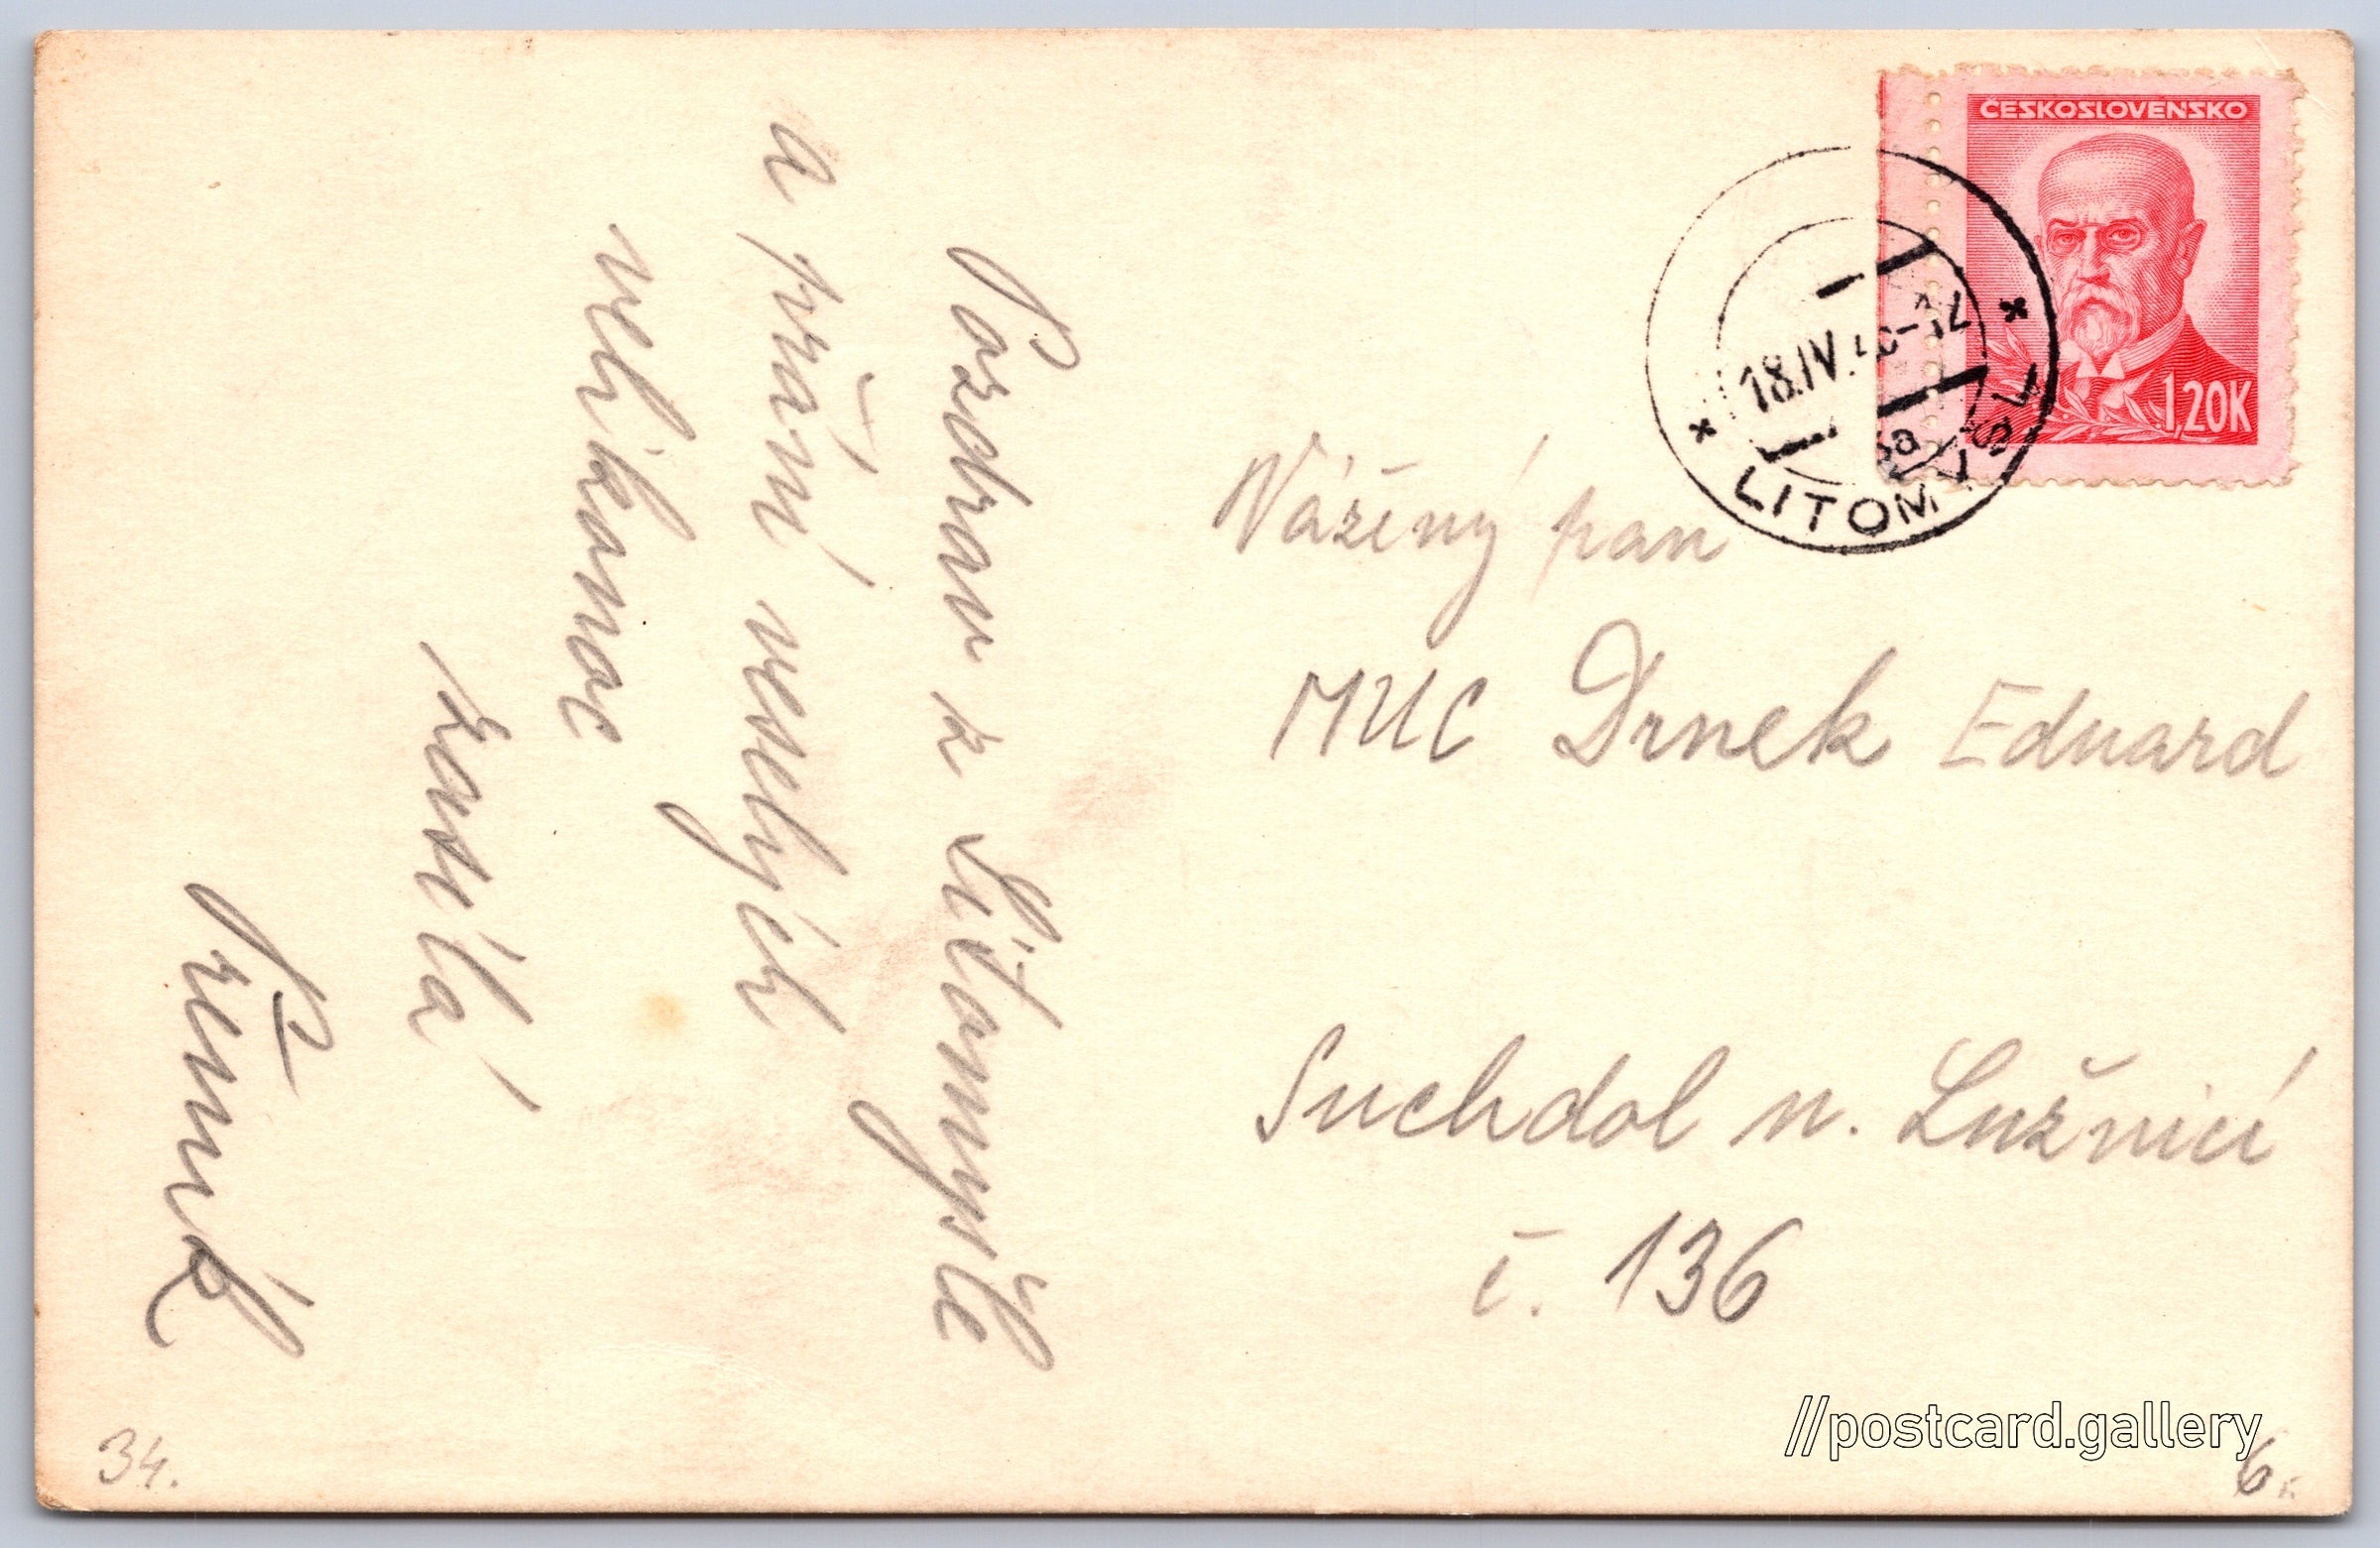 Pozdrav z Litomyšle
a přání veselých
velikonoc
zasílá
ČESKOSLOVENSKO
1,20K
18.IV.
6a
LITOMYŠL
Vážený pan
MUC Drnek Eduard
Suchdol n. Lužnicí
č. 136
34.
//postcard.gallery
6